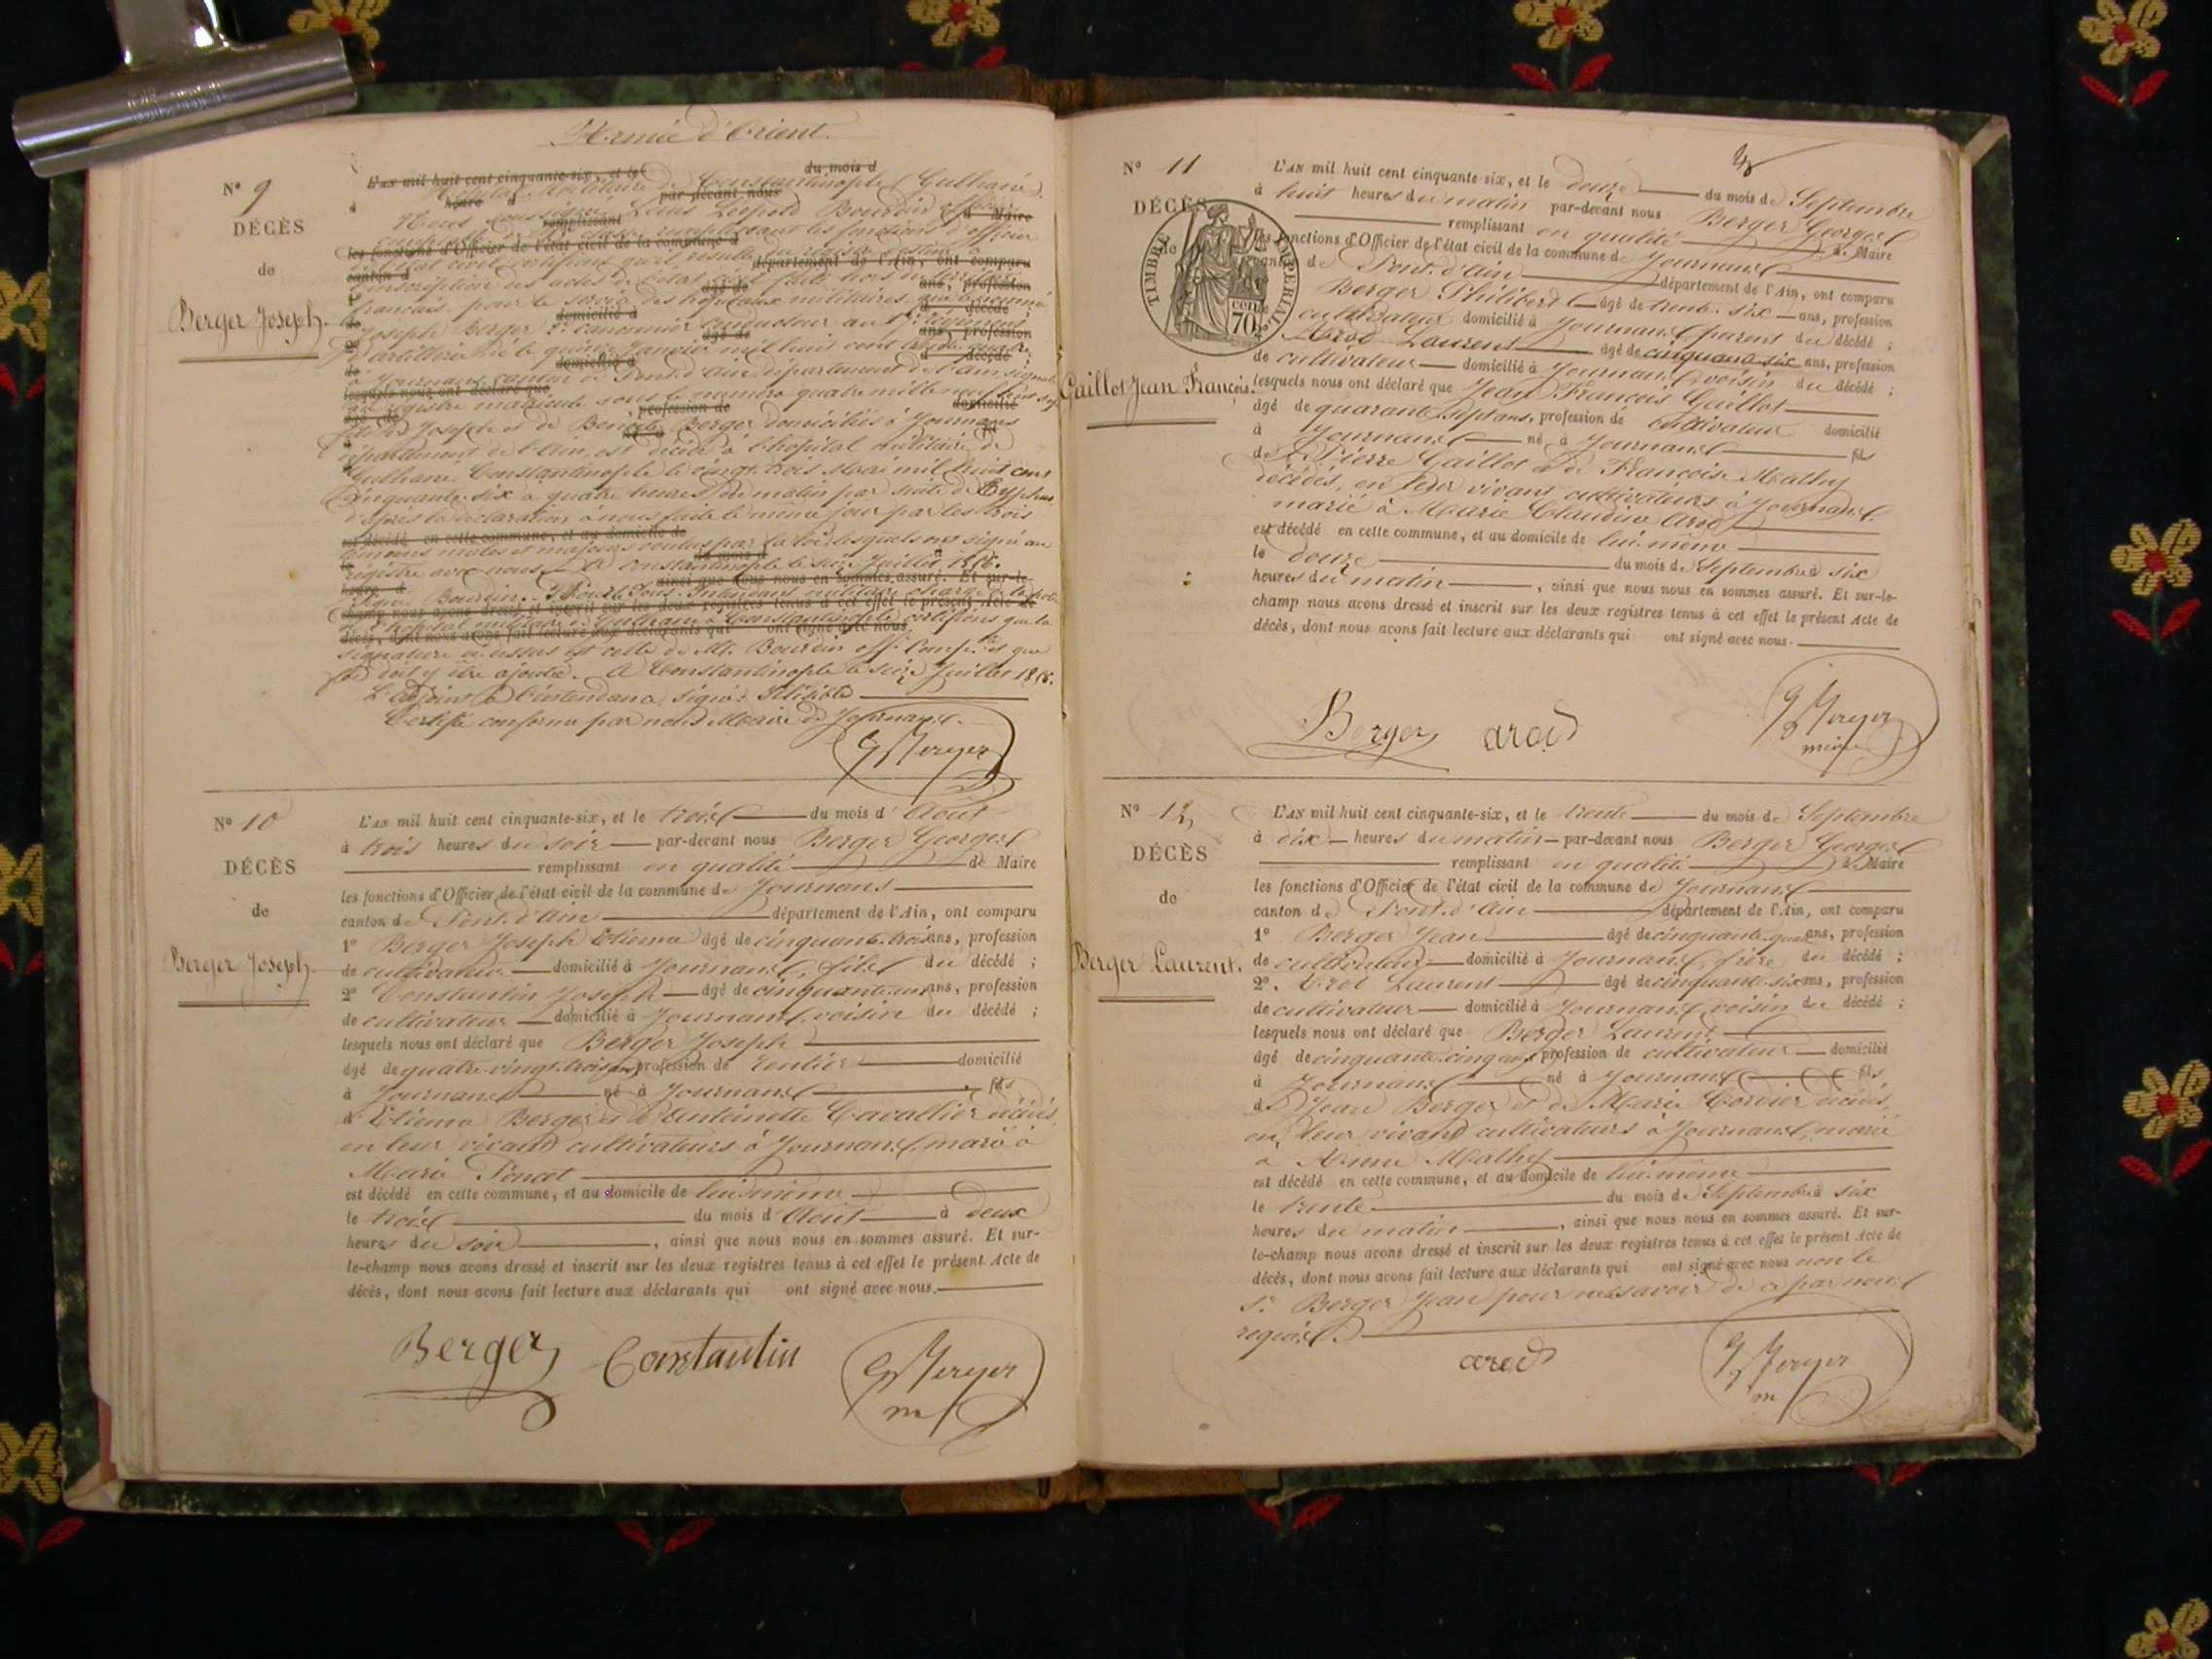 Armée d'Orient.
N° 9
DÉCÈS
de
Berger Joseph.
L'AN mil huit cent cinquante-six, et le
du mois d
Hôpital Militaire de Constantinople (Gulhané).
par-devant nous
Nous soussigné Louis Léopold Bourdin officier
remplissant les fonctions d'officier
les fonctions d'Officier de l'état civil de la commune d
de l'état civil certifions qu'il résulte du registre destiné à
département de l'Ain, ont comparu
l'inscription des actes de l'état civil faits hors du territoire
français pour le service des hôpitaux militaires que le nommé
Joseph Berger 2e canonnier conducteur au
d'artillerie né le quinze Janvier mil huit cent trente quatre
à Journans canton de Pont d'ain département de l'ain, signalé
au registre matricule sous le numéro quatre mille neuf cent
fils de Joseph et de Benoite Berger domiciliés à Journans
département de l'Ain, est décédé à l'hôpital militaire de
Gulhané Constantinople le vingt trois Mai mil huit cent
cinquante-six à quatre heures du matin par suite de Typhus
d'après la déclaration à nous faite le même jour par les trois
est décédé en cette commune, et au domicile de
témoins mâles et majeurs voulus par la loi, lesquels ont signé au
registre avec nous. A Constantinople le seize Juillet 1856.
ainsi que nous nous en sommes assuré. Et sur-le-
Signé Bourdin. Nous Sous-Intendant militaire chargé de la police
champ nous avons dressé et inscrit sur les deux registres tenus à cet effet le présent Acte de
de l'hôpital militaire de Gulhané à Constantinople certifions que la
décès, dont nous avons fait lecture aux déclarants qui ont signé avec nous.
signature ci-dessus est celle de M. Bourdin off. Compt. et que
foi doit y être ajoutée. A Constantinople le seize Juillet 1856.
L'adjoint à l'intendance, signé: Illisible
Certifié conforme par nous Maire de Journans.
G Berger
N° 10
DÉCÈS
de
Berger Joseph.
L'AN mil huit cent cinquante-six, et le trois du mois d'Août
à trois heures du soir par-devant nous Berger Georges
remplissant en qualité de Maire
les fonctions d'Officier de l'état civil de la commune de Journans
canton de Pont-d'ain département de l'Ain, ont comparu
1° Berger Joseph Etienne âgé de cinquante-trois ans, profession
de cultivateur domicilié à Journans, fils du décédé ;
2° Constantin Joseph âgé de cinquante-un ans, profession
de cultivateur domicilié à Journans, voisin du décédé ;
lesquels nous ont déclaré que Berger Joseph
âgé de quatre-vingt-trois ans profession de rentier domicilié
à Journans né à Journans fils
d'Etienne Berger et d'Antoinette Cavallier décédés,
en leur vivant cultivateurs à Journans, marié à
Marie Poncet
est décédé en cette commune, et au domicile de lui-même
le trois du mois d'Août à deux
heures du soir , ainsi que nous nous en sommes assuré. Et sur-
le-champ nous avons dressé et inscrit sur les deux registres tenus à cet effet le présent Acte de
décès, dont nous avons fait lecture aux déclarants qui ont signé avec nous.
Berger Constantin G Berger
m
N° 11
DÉCÈS
de
TIMBRE IMPERIAL
70 cent
Gaillot Jean François.
L'AN mil huit cent cinquante-six, et le douze du mois de Septembre
à huit heures du matin par-devant nous Berger Georges
remplissant en qualité de Maire
les fonctions d'Officier de l'état civil de la commune de Journans
canton de Pont-d'ain département de l'Ain, ont comparu
Berger Philibert âgé de trente-six ans, profession
cultivateur domicilié à Journans parent du décédé ;
2° Arod Laurent âgé de cinquante-six ans, profession
de cultivateur domicilié à Journans, voisin du décédé ;
lesquels nous ont déclaré que Jean François Gaillot
âgé de quarante-sept ans, profession de cultivateur domicilié
à Journans né à Journans fils
de Pierre Gaillot et de Françoise Mathy
décédés, en leur vivant cultivateurs à Journans,
marié à Marie Claudine Arod
est décédé en cette commune, et au domicile de lui-même
le douze du mois de Septembre à six
heures du matin , ainsi que nous nous en sommes assuré. Et sur-le-
champ nous avons dressé et inscrit sur les deux registres tenus à cet effet le présent Acte de
décès, dont nous avons fait lecture aux déclarants qui ont signé avec nous.
Berger arod G Berger
maire
N° 12
DÉCÈS
de
Berger Laurent.
L'AN mil huit cent cinquante-six, et le trente du mois de Septembre
à dix heures du matin par-devant nous Berger Georges
remplissant en qualité de Maire
les fonctions d'Officier de l'état civil de la commune de Journans
canton de Pont-d'ain département de l'Ain, ont comparu
1° Berger Jean âgé de cinquante-quatre ans, profession
de cultivateur domicilié à Journans, frère du décédé ;
2° Arod Laurent âgé de cinquante-six ans, profession
de cultivateur domicilié à Journans, voisin du décédé ;
lesquels nous ont déclaré que Berger Laurent
âgé de cinquante-cinq ans profession de cultivateur domicilié
à Journans né à Journans fils
de Jean Berger et de Marie Cordier décédés,
en leur vivant cultivateurs à Journans, marié
à Anne Mathy
est décédé en cette commune, et au domicile de lui-même
le trente du mois de Septembre à six
heures du matin , ainsi que nous nous en sommes assuré. Et sur-
le-champ nous avons dressé et inscrit sur les deux registres tenus à cet effet le présent Acte de
décès, dont nous avons fait lecture aux déclarants qui ont signé avec nous non le
Sr Berger Jean pour ne savoir de ce par nous
requis.
arod G Berger
m